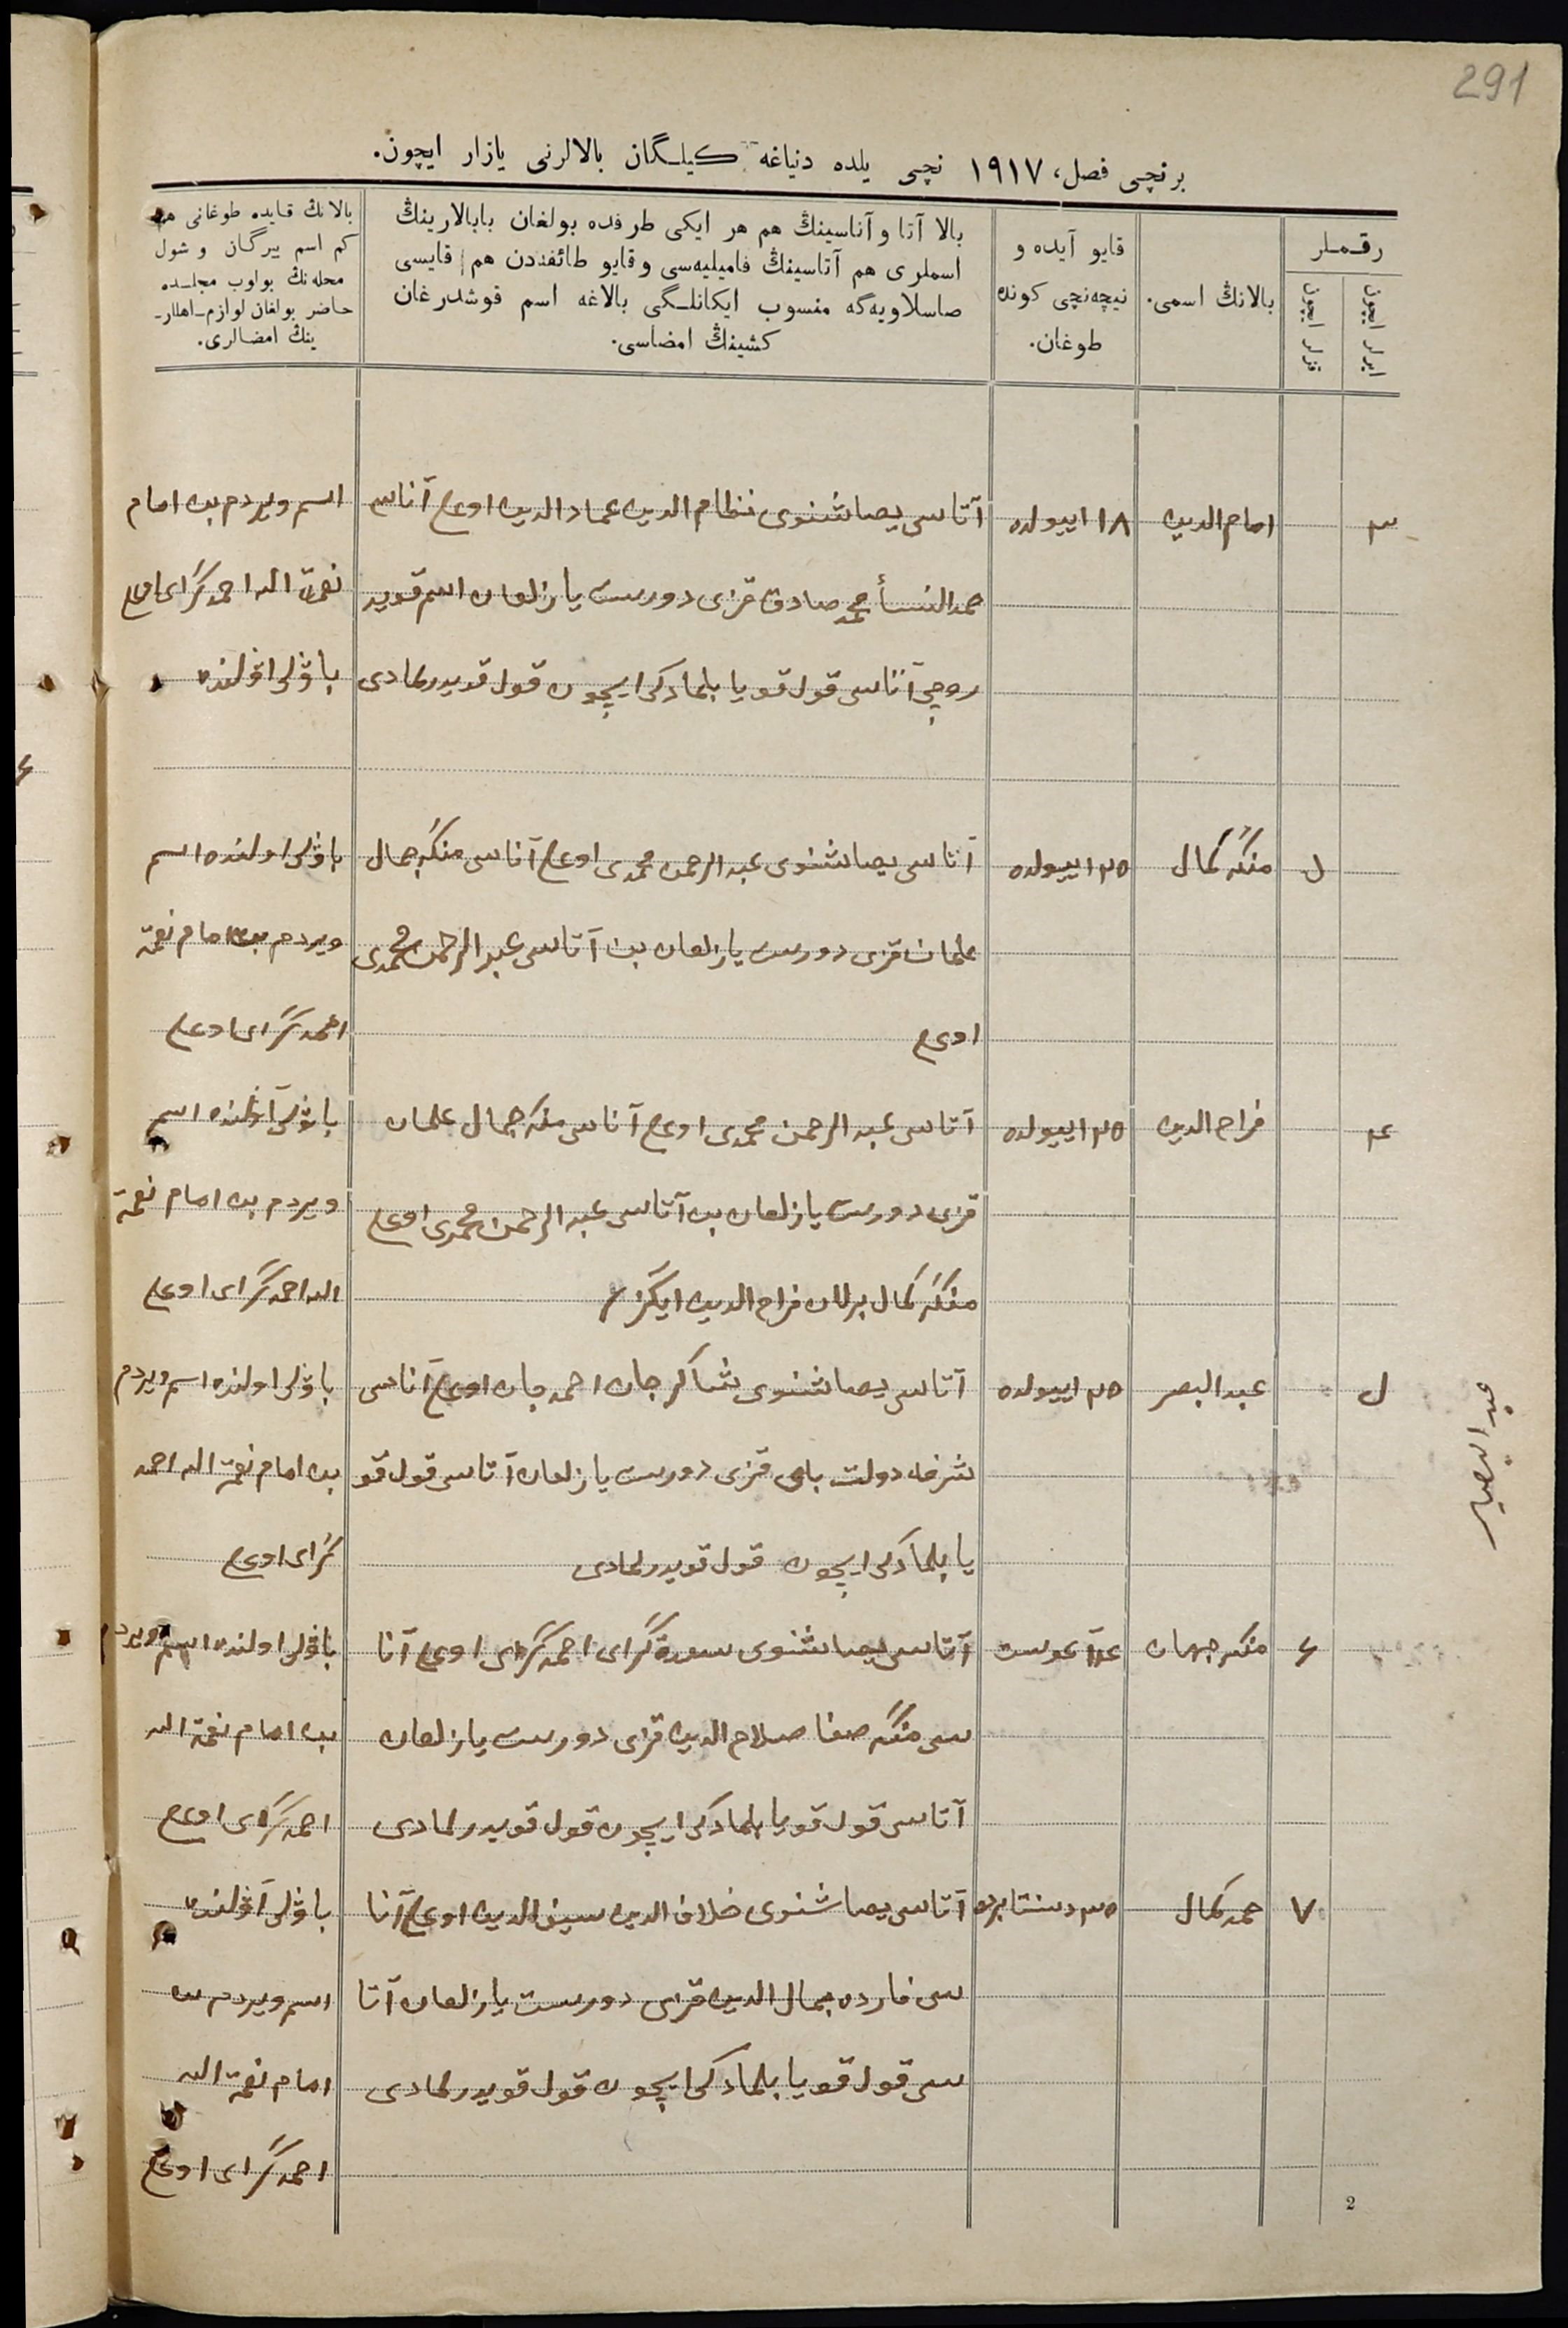 291
برنچی فصل، ١٩١٧ نچی یلده دنیاغه کیلگان بالالرنی یازار ایچون.
رقملر
ایرلر ایچون
قزلر ایچون
بالانڭ اسمی.
قایو آیده و
نیچه‌نچی کونده
طوغان.
بالا آتا و آناسینڭ هم هر ایکی طرفده بولغان بابالارینڭ
اسملری هم آتاسینڭ فامیلیه‌سی و قایو طائفه‌دن هم قایسی
صاسلاویه‌گه منسوب ایکانلگی بالاغه اسم قوشدرغان
کشینڭ امضاسی.
بالانڭ قایده طوغانی هم
کم اسم بیرگان و شول
محله‌نڭ بولوب مجلسده
حاضر بولغان لوازم اهللار
ینڭ امضالری.
٣ امام الدین ١٨ اییولده آتاسی یصاشنوی نظام الدین عماد الدین اوغلی آناسی اسم ویردم بن امام
حمدالنسأ محمد صادق قزی دورست یازلغان اسم قویدر نعمة الله احمد گرای اوغلی
روچی آتاسی قول قویا بلمادکی ایچون قول قویدرلمادی باۋلی اۋلنده
ل منگه کمال ٢٥ اییولده آتاسی یصاشنوی عبد الرحمن محمدی اوغلی آناسی منگه جمال باۋلی اولنده اسم
علمان قزی دورست یازلغان بن آتاسی عبد الرحمن محمدی ویردم بن امام نعمة
اوغلی احمد گرای اوغلی
٤ فراح الدین ٢٥ اییولده آتاسی عبد الرحمن محمدی اوغلی آناسی منگه جمال علمان باۋلی آۋلنده اسم
قزی دورست یازلغان بن آتاسی عبد الرحمن محمدی اوغلی ویردم بن امام نعمة
منگه کمال برلان فراح الدین ایگز الله احمد گرای اوغلی
ل عبد البصر ٢٥ اییولده آتاسی یصاشنوی شاکر جان احمد جان اوغلی آناسی باۋلی اولنده اسم ویردم
شرفه دولت بای قزی دورست یازلغان آتاسی قول قو بن امام نعمة الله احمد
یا بلمادکی ایچون قول قویدرلمادی گرای اوغلی
عبد البصیر
۶ منگه جهان آغوست آتاسی یصاشنوی سورة گرای احمد گرای اوغلی آنا باۋلی اولنده اسم ویردم
سی منگه صفا صلاح الدین قزی دورست یازلغان بن امام نعمة الله
آتاسی قول قویا بلمادکی ایچون قول قویدرلمادی احمد گرای اوغلی
٧ حمد کمال آتاسی یصاشنوی خلاف الدین سیف الدین اوغلی آنا باۋلی آۋلنده
سی فارده جمال الدین قزی دورست یازلغان آتا اسم ویردم بن
سی قول قویا بلمادکی ایچون قول قویدرلمادی امام نعمة الله
احمد گرای اوغلی
2